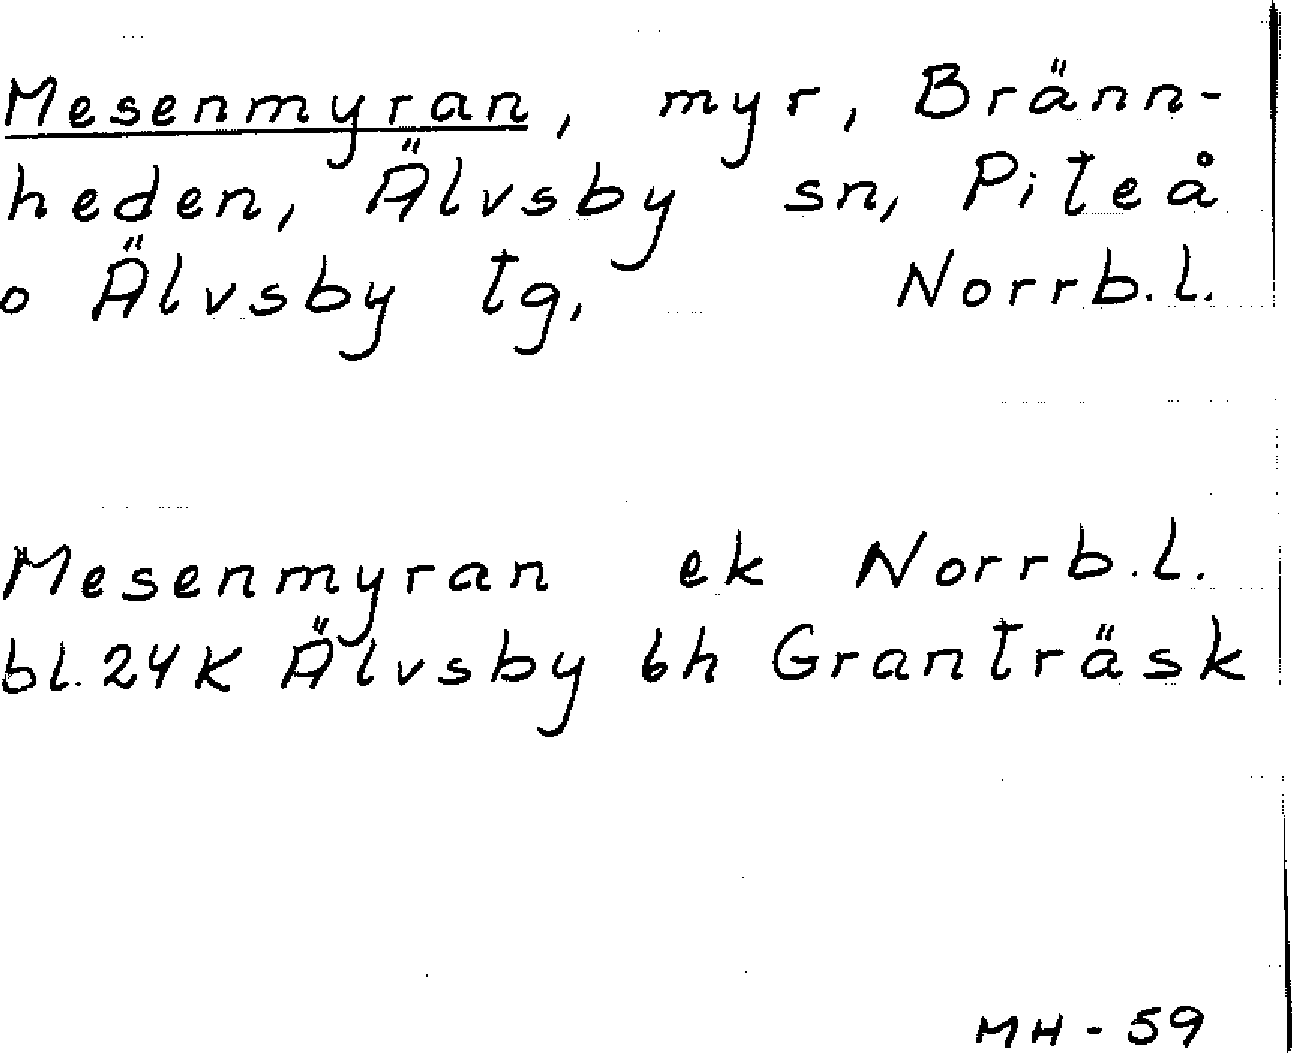 Mesenmyran, myr, Bränn-
heden, Älvsby sn, Piteå
o Älvsby tg, Norrb.l.
Mesenmyran ek Norrb.l.
bl. 24K Älvsby 6h Granträsk
MH-59